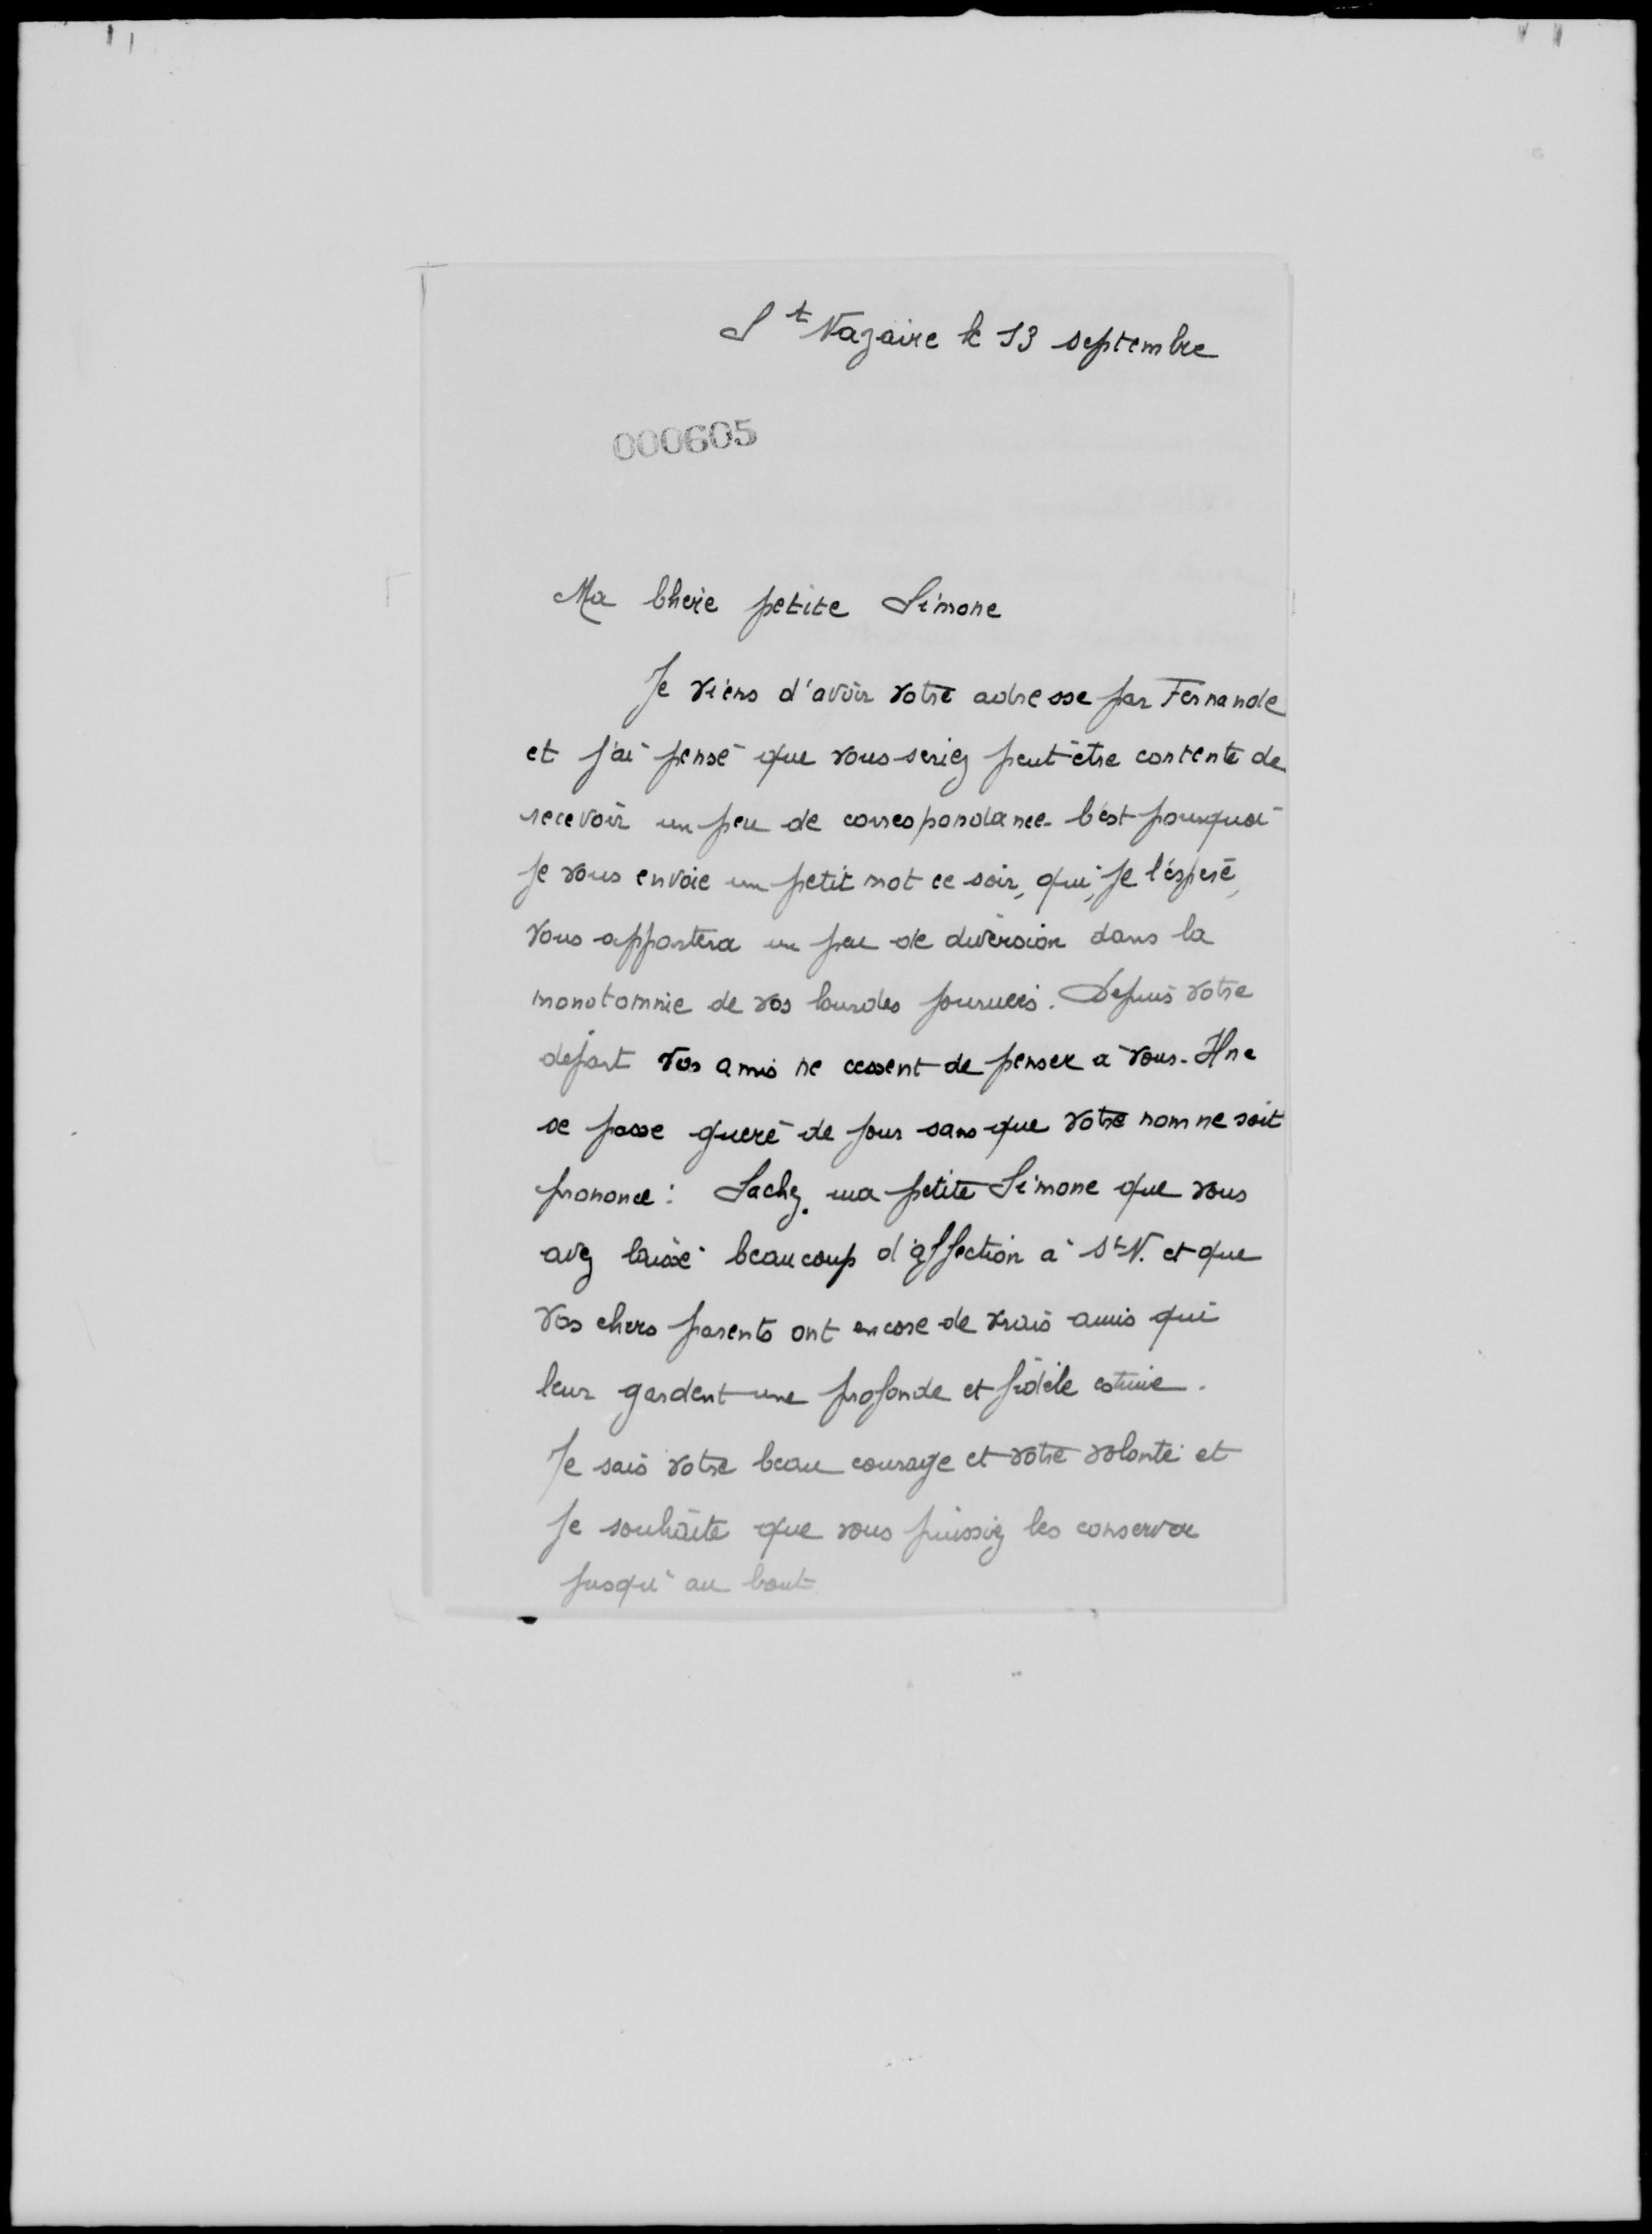 St Nazaire le 13 septembre
000605
Ma Chère petite Simone
Je viens d'avoir votre adresse par Fernande
et j'ai pensé que vous seriez peut-être contente de
recevoir un peu de correspondance. C'est pourquoi
je vous envoie un petit mot ce soir, qui, je l'éspère,
vous apportera un peu de diversion dans la
monotomnie de vos lourdes journées. Depuis votre
départ vos amis ne cessent de penser à vous. Il ne
se passe guère de jour sans que votre nom ne soit
prononcé : Sachez, ma petite Simone que vous
avez laissé beaucoup d'affection à St N. et que
vos chers parents ont encore de vrais amis qui
leur gardent une profonde et fidèle estime.
Je sais votre beau courage et votre volonté et
je souhaite que vous puissiez les conserver
jusqu'au bout